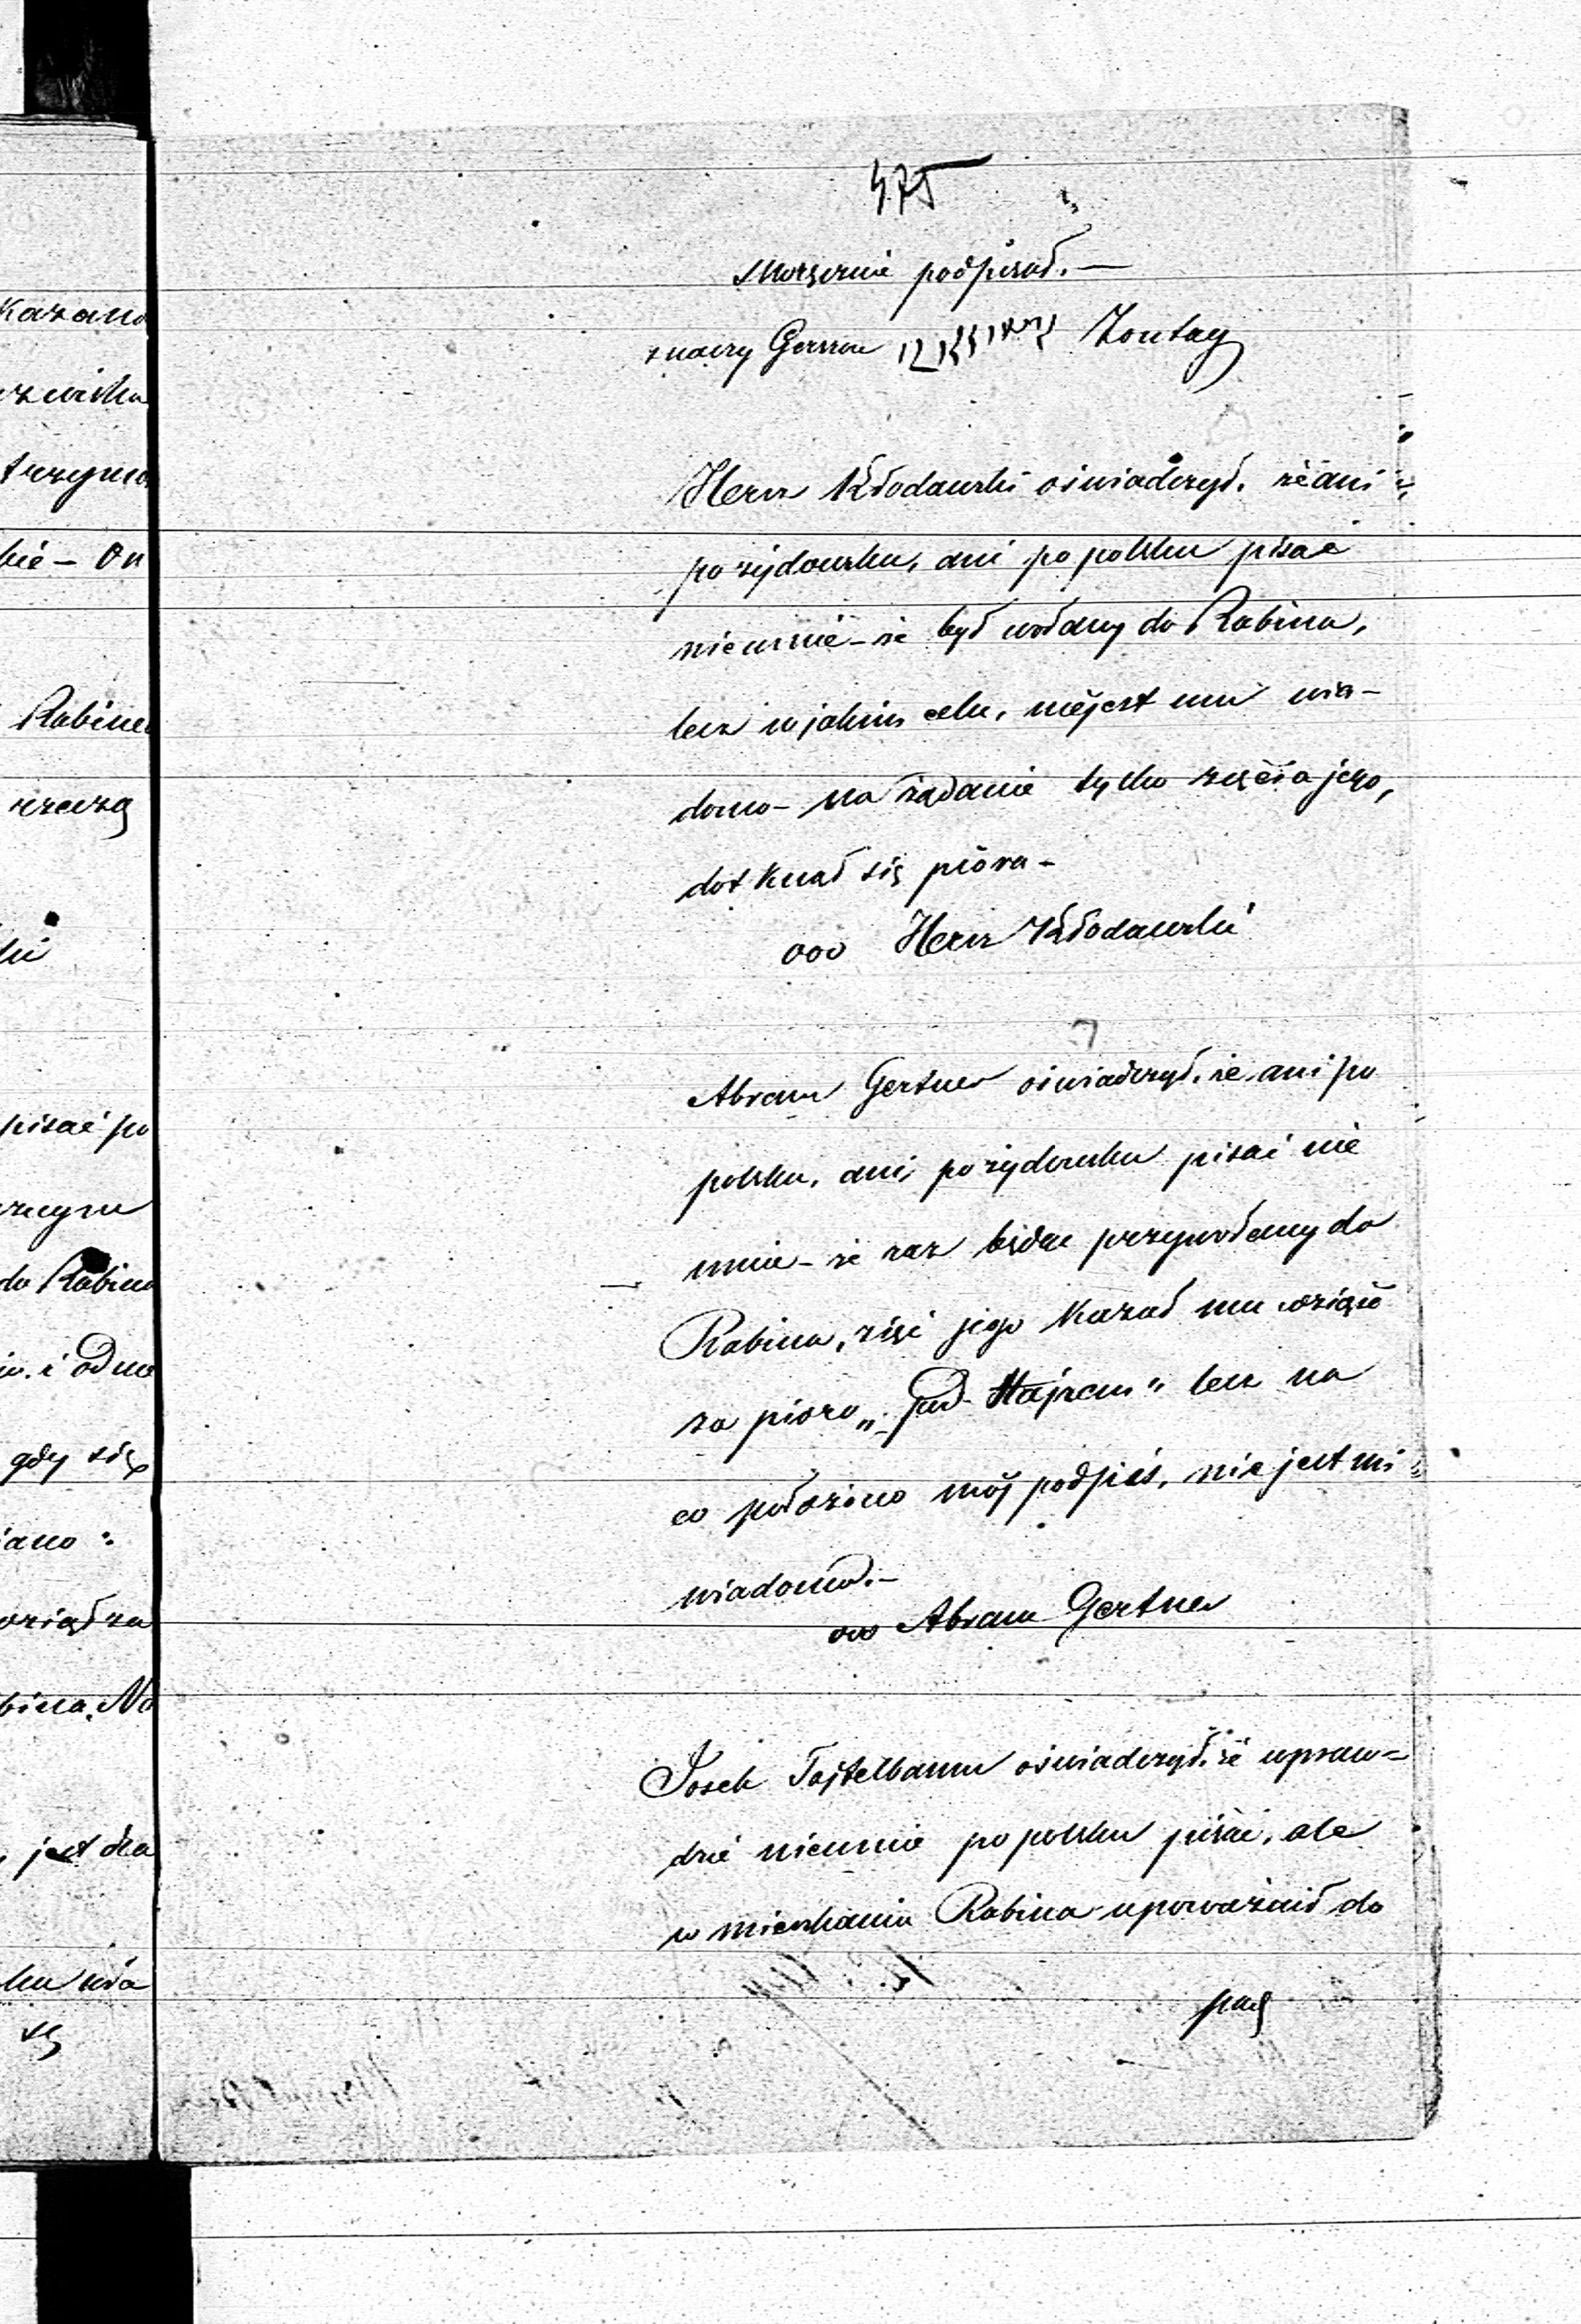 kazano
trzyma
kie – On
Rabina
rzeczą
pisać po
do Rabina
i odmó
gdy się
bina. Na
jest dla
475
własnoręcznie podpisał. —
znaczy Gerson Zontag
Hersz Kłodawski oświadczył, że ani
po żydowsku, ani po polsku pisać
nieumie – że był wołany do Rabina,
lecz w jakim celu, niejest mu wia-
domo – na żądanie tylko zięcia jego,
dotknął się pióra –
ooo Hersz Kłodawski
Abram Gertner oświadczył, że ani po
polsku, ani po żydowsku pisać nie
umie – że raz będąc przywołany do
Rabina, zięć jego kazał mu wziąść
za pióro „ " lecz na
co położono mój podpis, nie jest mi
wiadomo. –
ooo Abram Gertner
Josek Tajtelbaum oświadczył, że wpraw=
dzie nieumie po polsku pisać, ale
w mieszkaniu Rabina upoważnił do
pod